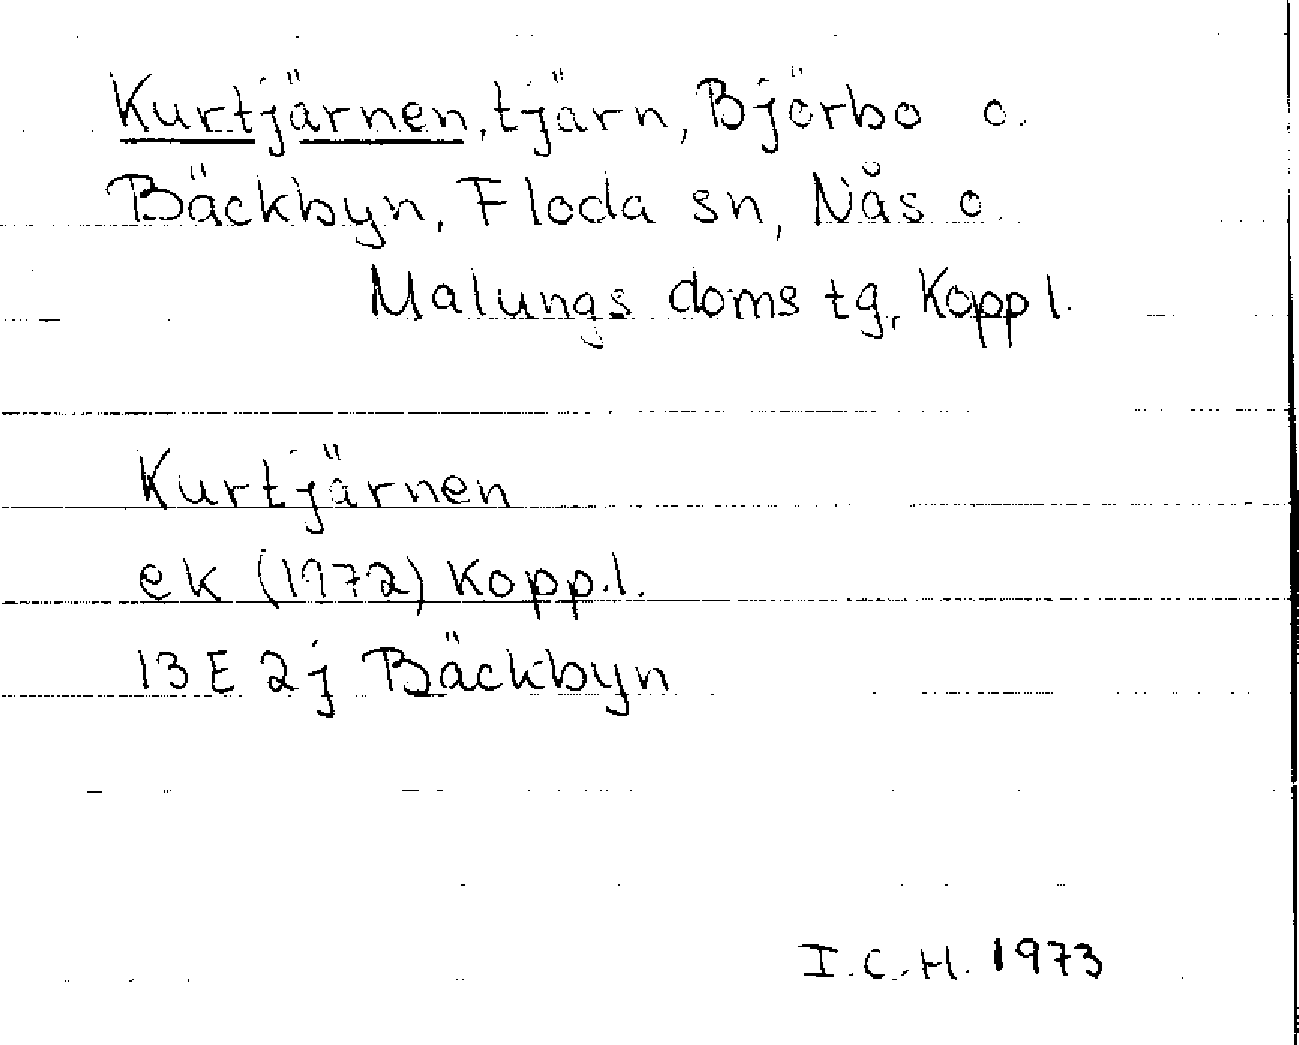 Kurtjärnen, tjärn, Björbo o.
Bäckbyn, Floda sn, Nås o.
Malungs doms tg, Koppl.
Kurtjärnen
ek (1972) Kopp.l.
13 E 2j Bäckbyn
I.C.H. 1973